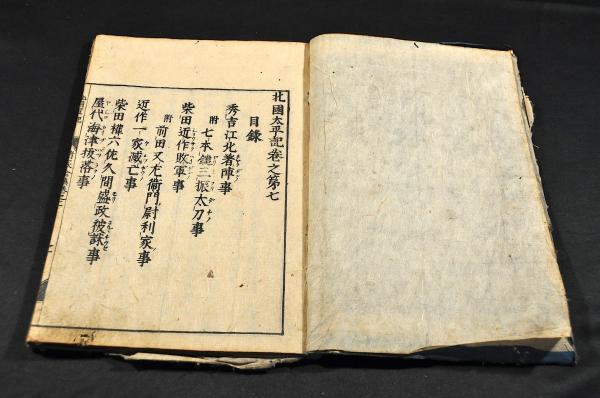 北國太平記卷之第七
目錄
秀吉江北著陣事
附 七本鎗三振太刀事
柴田近作敗軍事
附 前田又左衞門尉利家事
近作一家滅亡事
柴田權六佐久間盛政被誅事
屋代海津拔落事